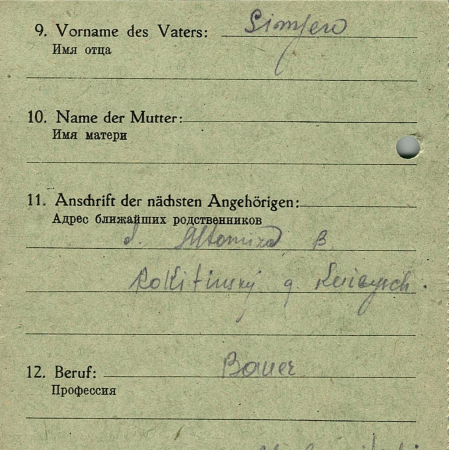 9. Vorname des Vaters:
Имя отца
10. Name der Mutter:
Имя матери
11. Anschrift der nächsten Angehörigen:
Адрес ближайших родственников
B.
Rokitinský
12. Beruf: Bauer
Профессия